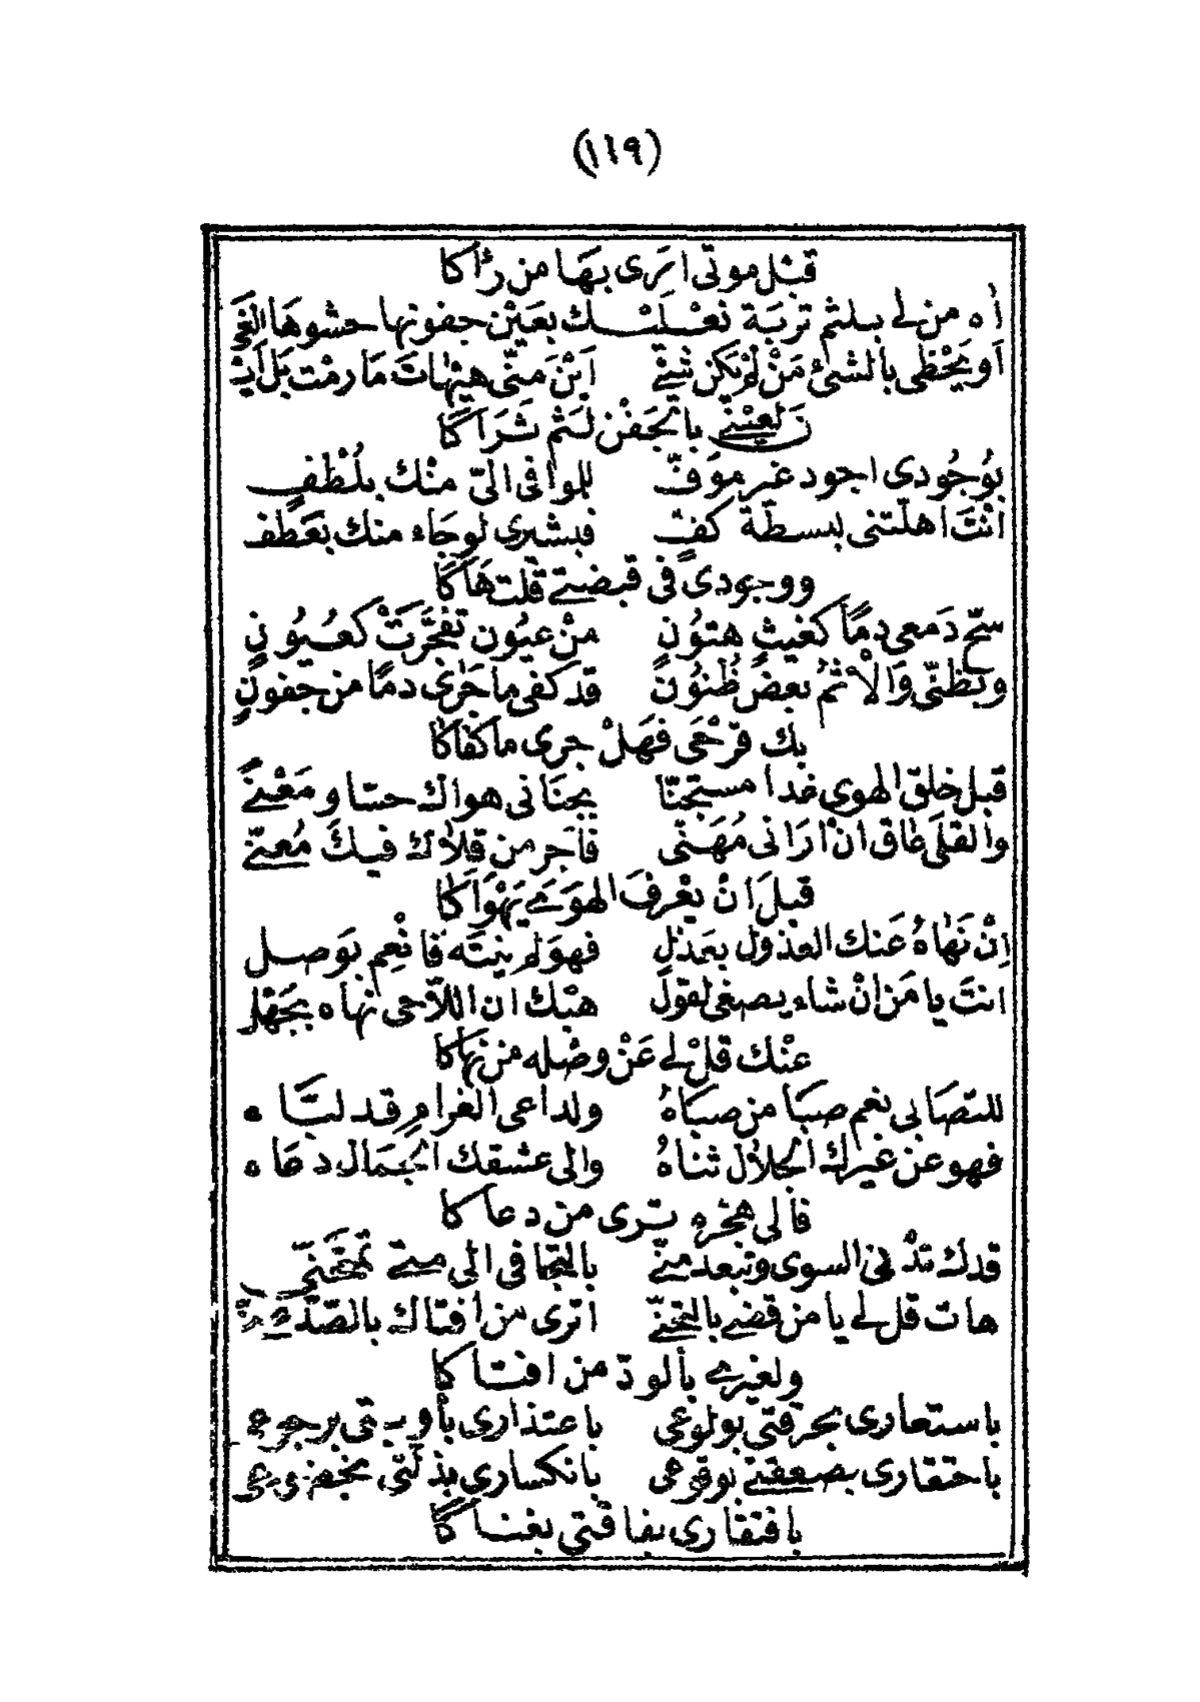 (١١٩)
قبْل موتى ارَى بهَا من رٰاكا
اٰه من لے بلثم تربَة نعْلَيْك بعَيْن جفونها حشوهَا الغى
اَو يَحْظى بالشئ مَنْ لَمْ يَكن شئے اَيْنَ مِنّى هيْهٰاتَ مَا رمْت بَل اَيْـ
ـنَ لعينے باْلجَفْن لَثم ثَرَاكَا
بوُجُودى اجود غير موَفّ للوافى الىّ منْك بلُطْفٍ
انْتَ اَهلّتنى لبسطَة كفٍّ فبشرى لوجَاء منك بعَطف
ووجودى فى قبضتے قلْت هَاكَا
سَحّ دَمعى دمًا كغيثٍ هتوُنٍ منْ عيُون تفجَّرَتْ كعُيوُنٍ
وبظنّى وَالْاثمُ بعض ظُنوُن قد كفى ما جَرٰى دمًا من جفونٍ
بك قرْحَى فهَلْ جرى ما كفاكا
قبل خلق الهوى غدا مستجنّا بجنَانى هواك حسّا ومَعْنےً
والقلَى عاق انْ ارَانى مُهَنّى فاَجر من قلاٰك فيكَ مُعنّے
قبلَ انْ يعْرفَ الهوَے يَهْوَاكَا
اِنْ نَهٰاهُ عَنك العذول بعذلٍ فهوَ لم ينته فانْعِم بوَصل
انتَ يا مَن انْ شاء يصغى لقول هبْك ان اللّاحى نهاه بجَهْل
عنْك قلْ لے عَنْ وصْله من نهاكا
للتصَابى نعم صبَا من صبَاهُ ولداعى الغرامِ قد لبّاه
فهو عن غيرك الجلال ثنَاهُ والى عشقك الجمال دعاه
فالى هجْره ترى من دعاكا
قدك تدْنى السوى وتبعد منّے بالتجافى الى متے تمتحَنّے
هات قل لے يا من قضے بالتجنّے اترى من افتاك بالصّدّ عنّے
ولغيرے بالودّ من افتاكا
باستعارى بحرقتى بولوعى باعتذارى بأوبتى برجوعى
باحتقارى بصعقتے بوقوعى بانكسارى بذلّتى بخضوعى
بافتقارى بفاقتى بغناكا